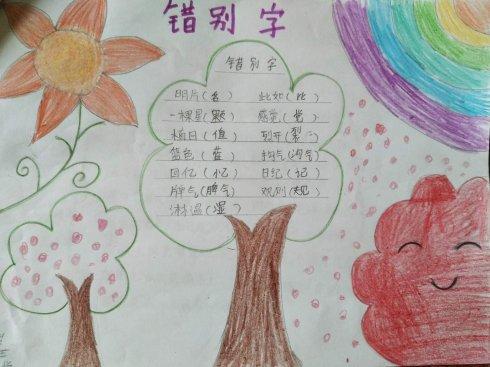 错别字
错别字
明片(名) 此如(比)
一棵星(颗) 感觉(觉)
植日(值) 列开(裂)
篮色(蓝) 掏气(淘气)
回亿(忆) 日纪(记)
脾气(脾气) 观则(规)
淋湿(湿)